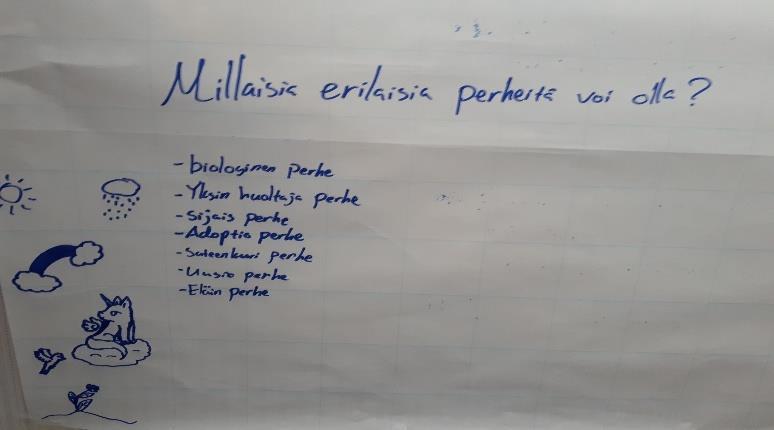 Millaisia erilaisia perheitä voi olla?
- biologinen perhe
- Yksin huoltaja perhe
- Sijais perhe
- Adoptio perhe
- Sateenkaari perhe
- Uusio perhe
- Eläin perhe